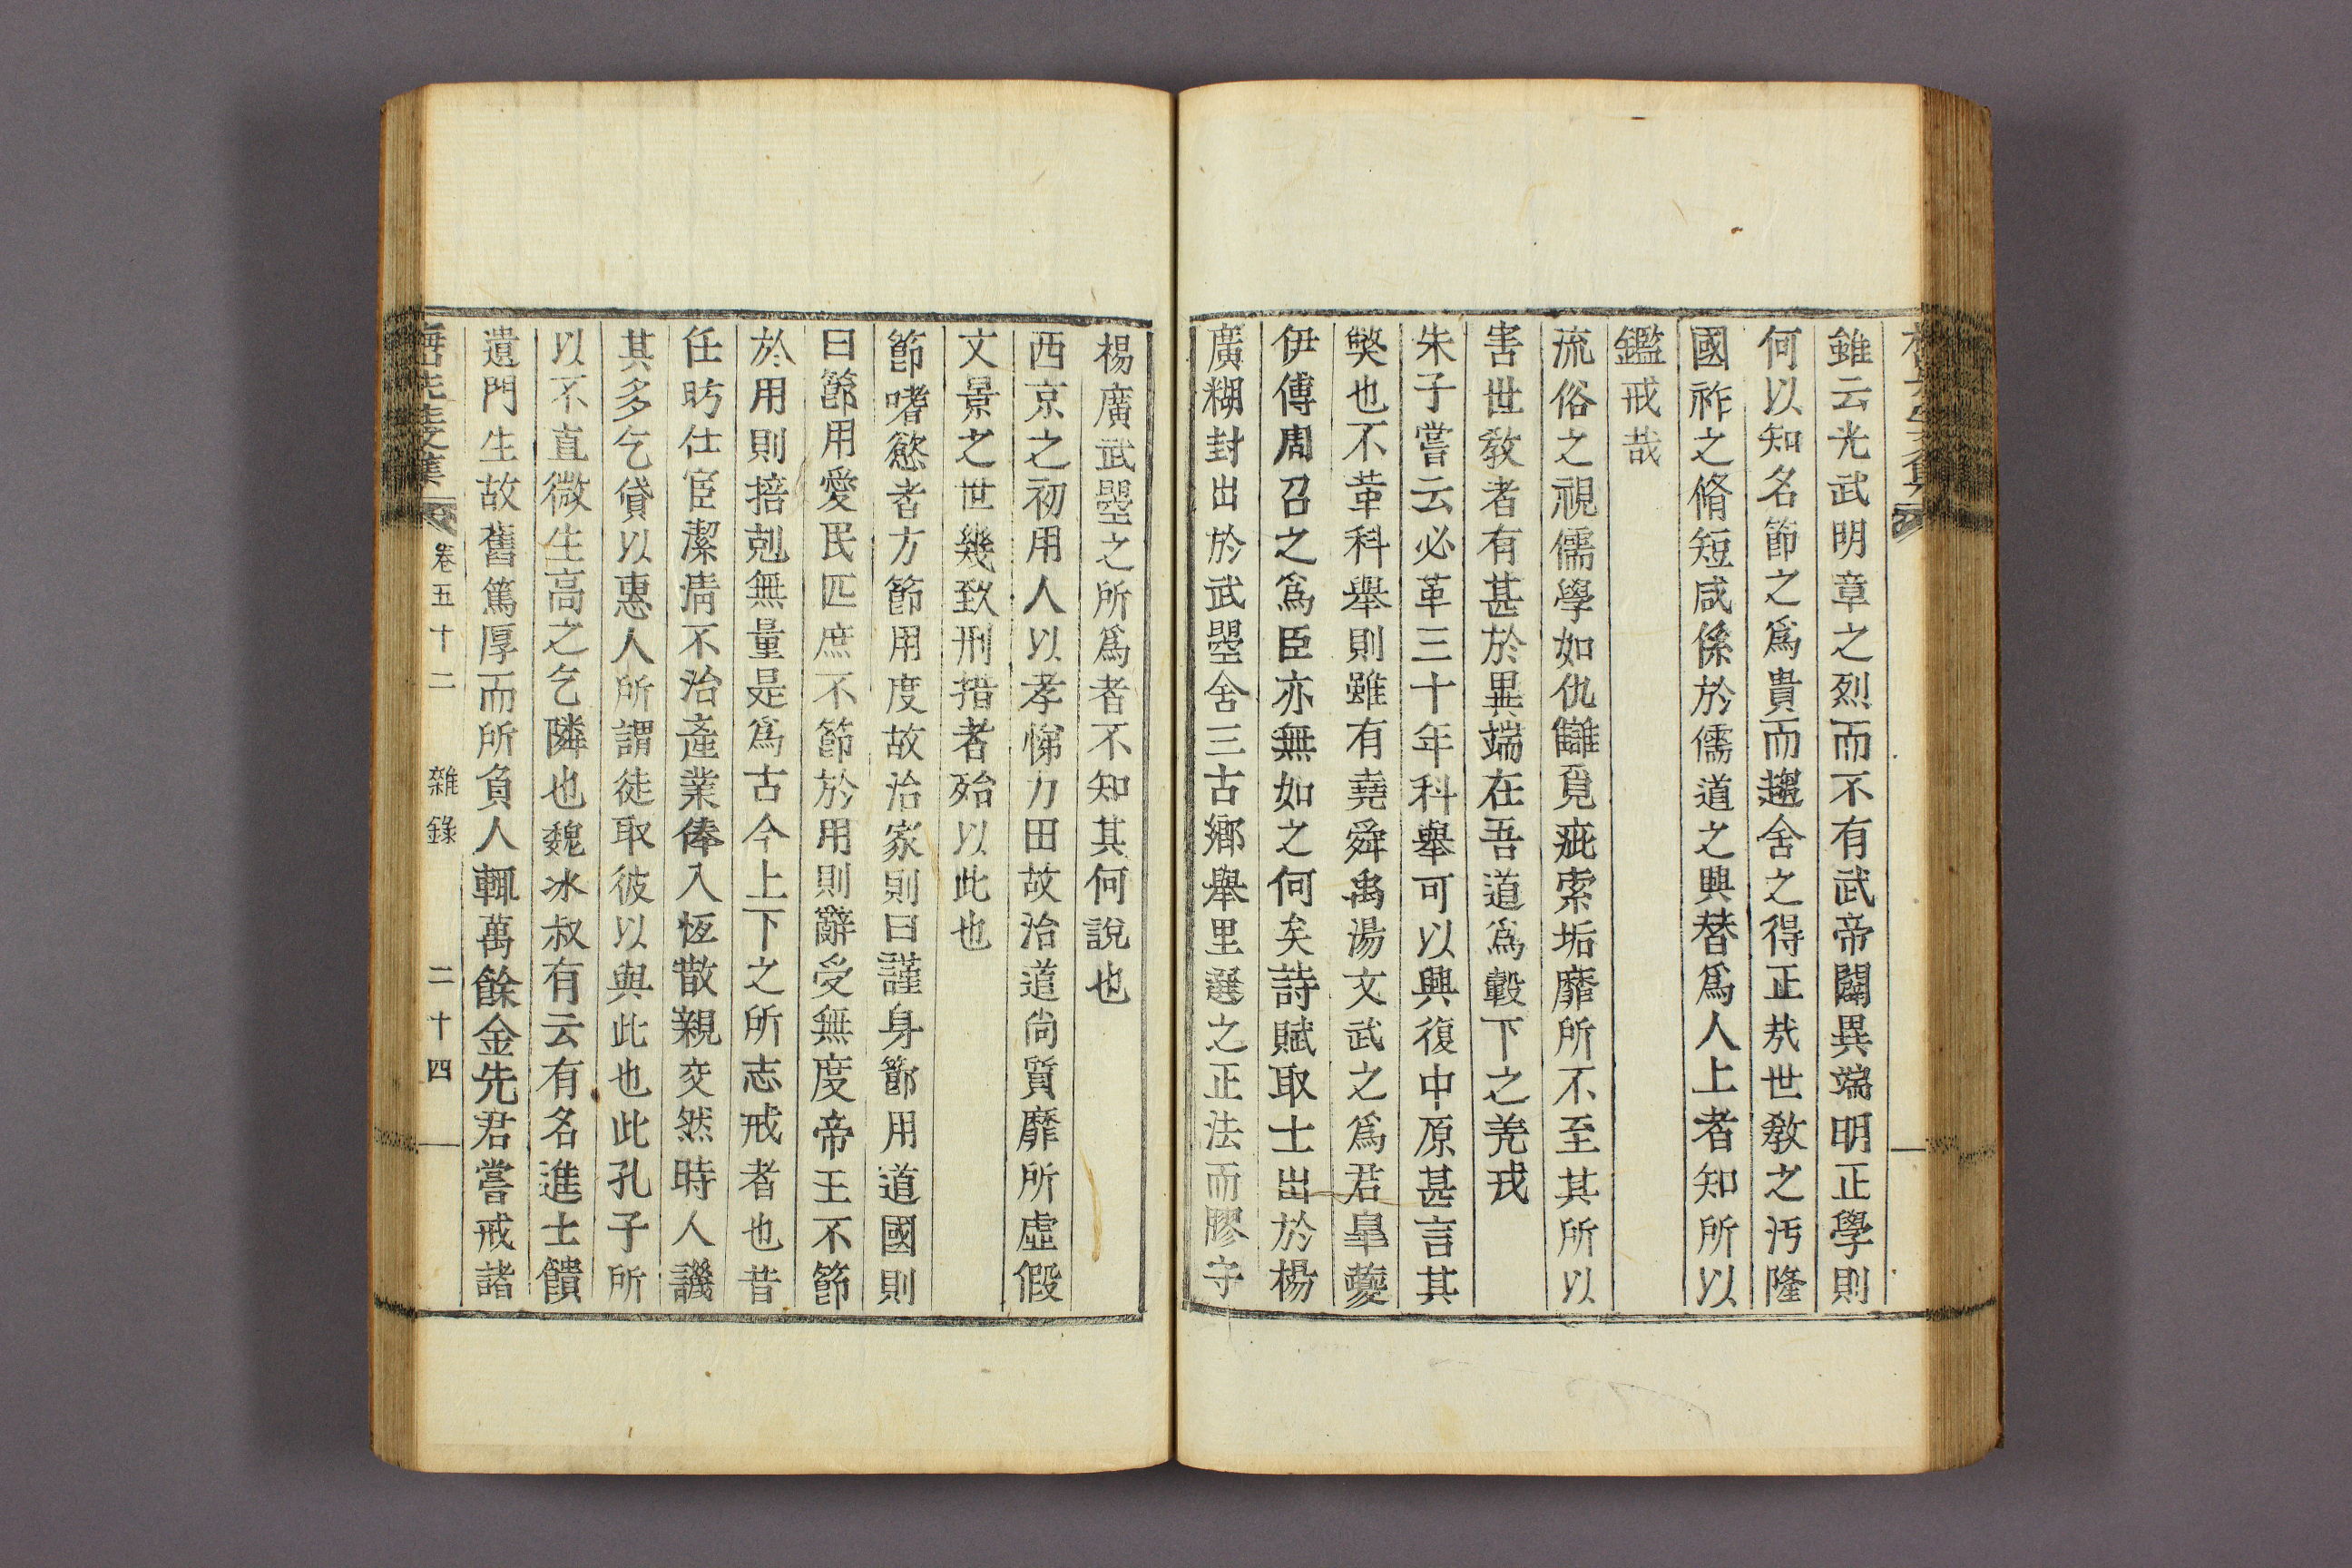 雖云光武明章之烈而不有武帝闢異端明正學則
何以知名節之爲貴而趨舍之得正㦲世敎之汚隆
國祚之脩短咸係於儒道之興替爲人上者知所以
鑑戒哉
流俗之視儒學如仇讎覓疵索垢靡所不至其所以
害世敎者有甚於異端在吾道爲轂下之羌戎
朱子嘗云必革三十年科擧可以興復中原甚言其
獘也不革科擧則雖有堯舜禹湯文武之爲君皐夔
伊傅周召之爲臣亦無如之何矣詩賦取士出於楊
廣糊封出於武曌舍三古鄕擧里選之正法而膠守
楊廣武曌之所爲者不知其何說也
西京之初用人以孝悌力田故治道尙質靡所虛假
文景之世幾致刑措者殆以此也
節嗜慾者方節用度故治家則曰謹身節用道國則
曰節用愛民匹庶不節於用則辭受無度帝王不節
於用則掊剋無量是爲古今上下之所志戒者也昔
任昉仕宦潔淸不治產業俸入恆散親交然時人譏
其多乞貸以惠人所謂徒取彼以與此也此孔子所
以不直微生高之乞隣也魏冰叔有云有名進士饋
遺門生故舊篤厚而所負人輒萬餘金先君嘗戒諸
先生文集 卷五十二 雜錄 二十四